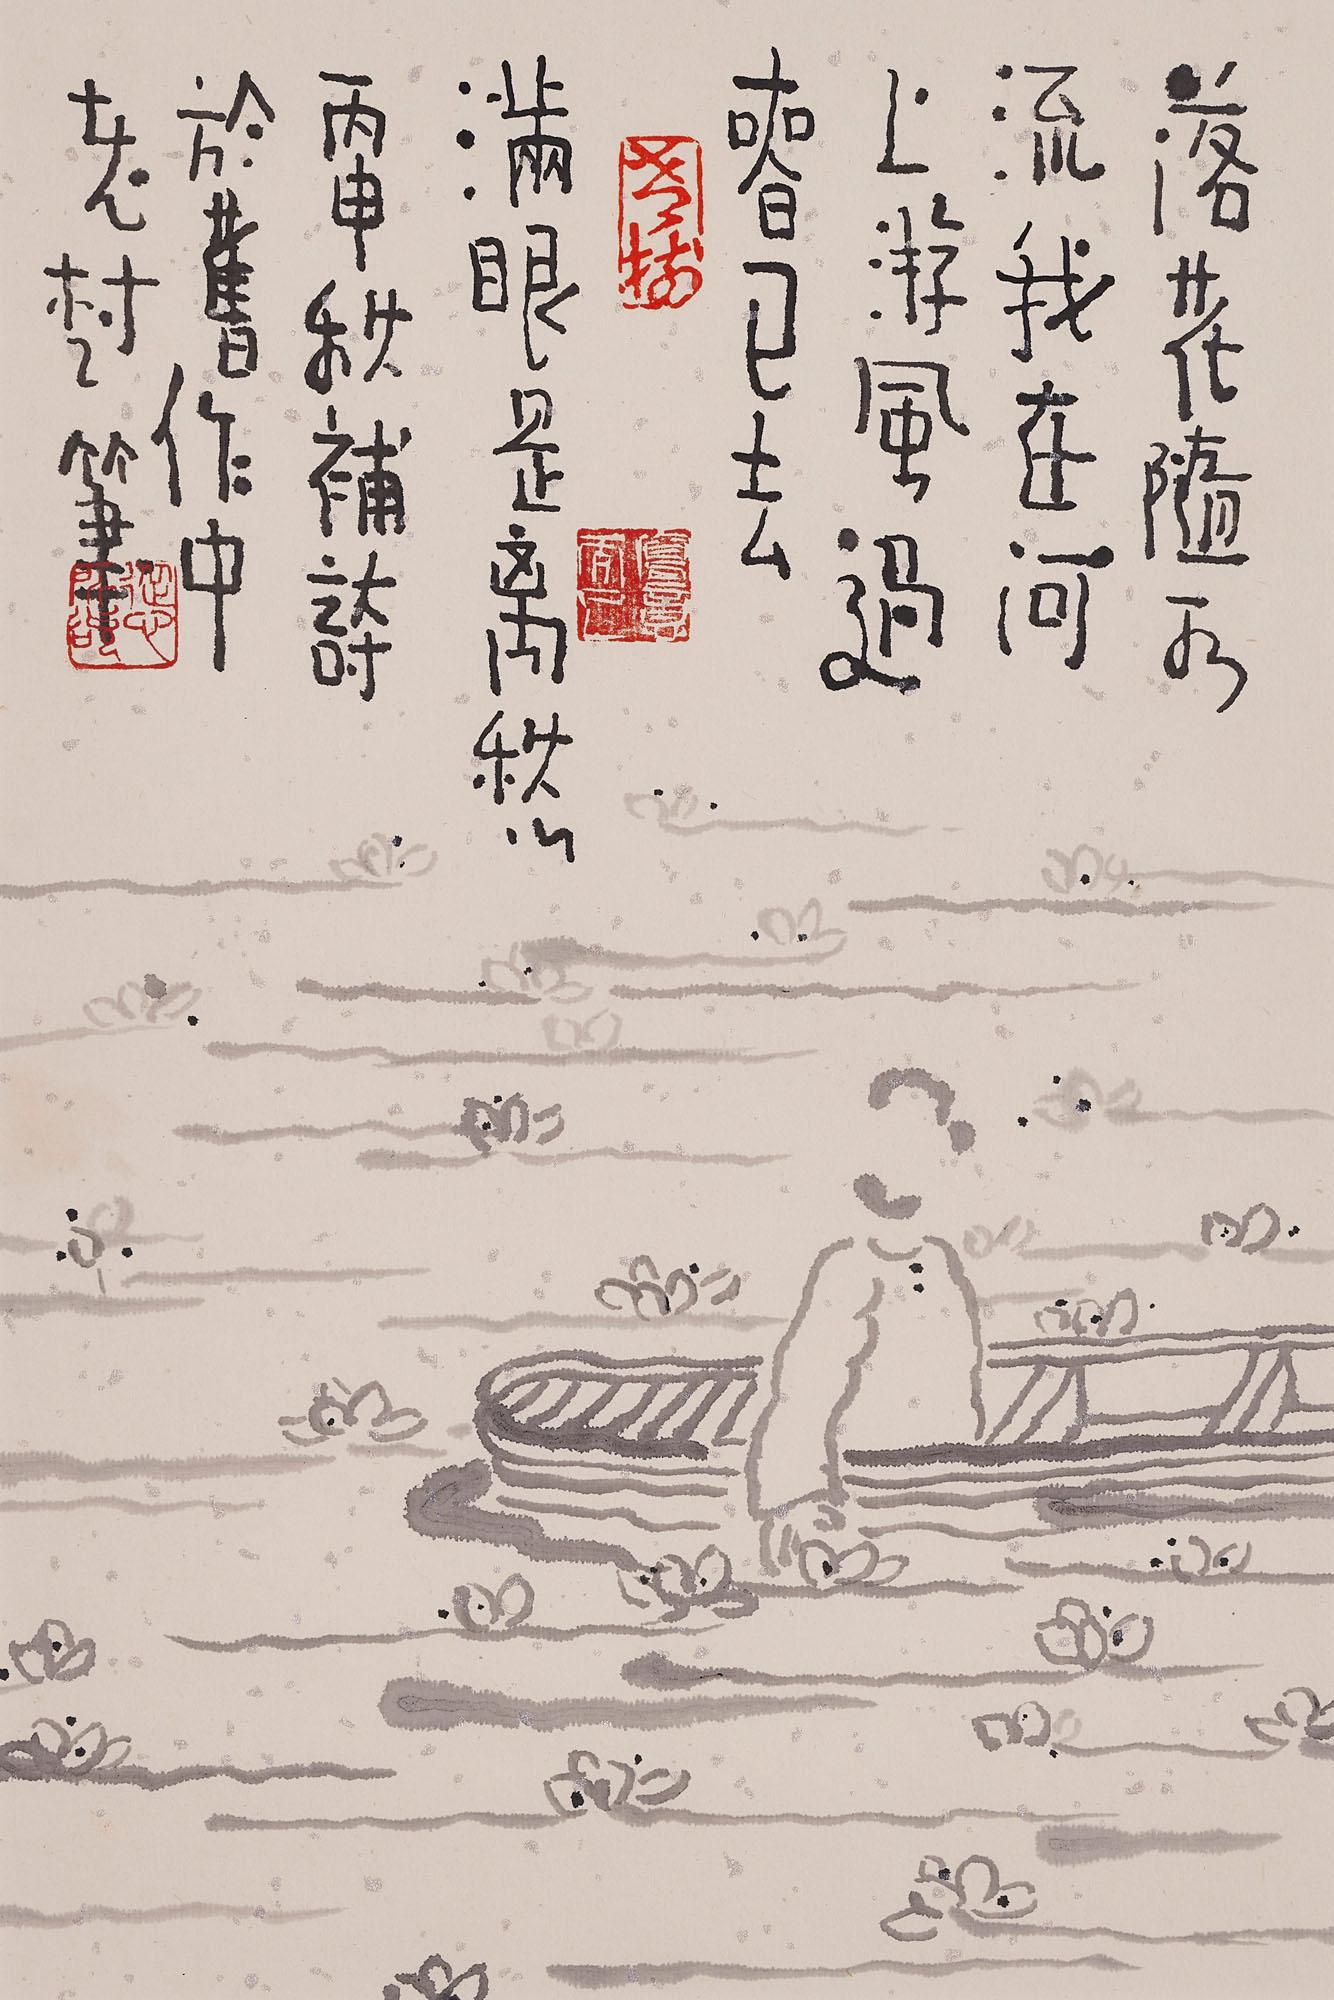 落花隨水
流我在河
上游風過
春已去
滿眼是离愁
丙申秋補詩
於舊作中
老树筆
老樹